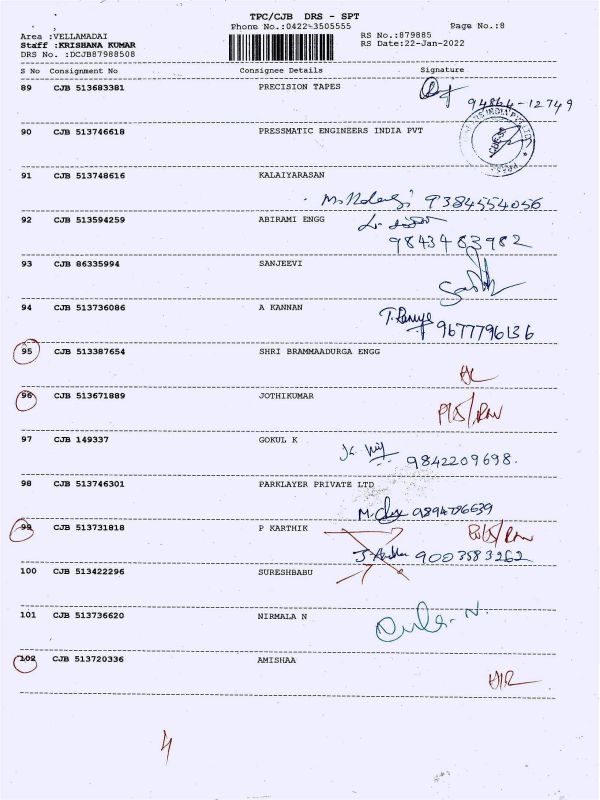 TPC/CJB DRS - SPT
Phone No.:0422-3505555 Page No.:8
Area :VELLAMADAI RS No.:879885
Staff :KRISHANA KUMAR RS Date:22-Jan-2022
DRS No. :DCJB87988508
S No Consignment No Consignee Details Signature
89 CJB 513683381 PRECISION TAPES
94864-12749
90 CJB 513746618 PRESSMATIC ENGINEERS INDIA PVT
91 CJB 513748616 KALAIYARASAN
9384554056
92 CJB 513594259 ABIRAMI ENGG
9843483982
93 CJB 86335994 SANJEEVI
94 CJB 513736086 A KANNAN
9677796136
95 CJB 513387654 SHRI BRAMMAADURGA ENGG
96 CJB 513671889 JOTHIKUMAR
97 CJB 149337 GOKUL K
9842209698.
98 CJB 513746301 PARKLAYER PRIVATE LTD
9894786639
99 CJB 513731818 P KARTHIK
9003583262
100 CJB 513422296 SURESHBABU
101 CJB 513736620 NIRMALA N
102 CJB 513720336 AMISHAA
4